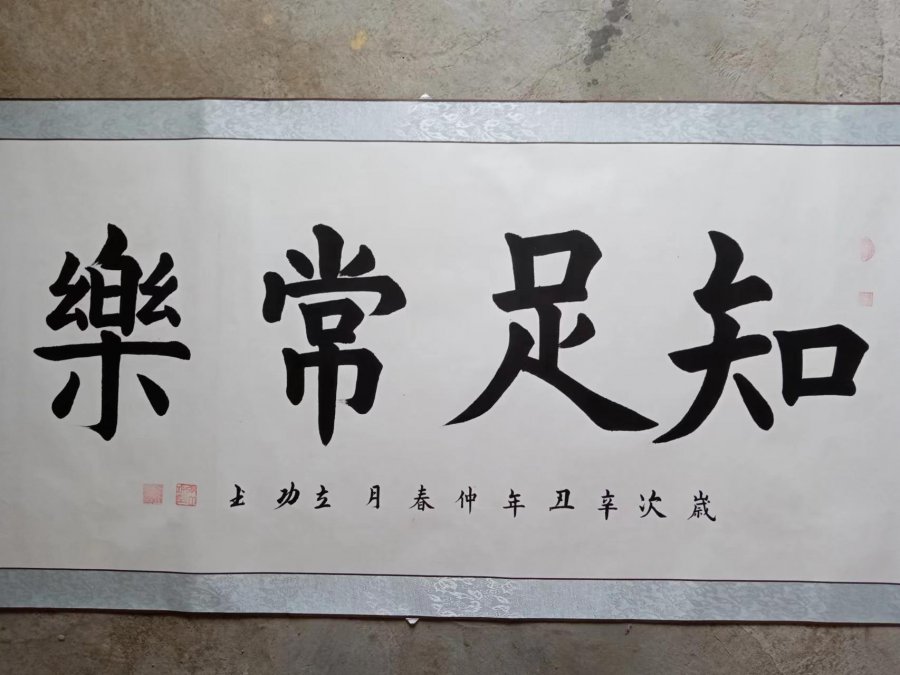 知足常樂
歲次辛丑年仲春月立功书